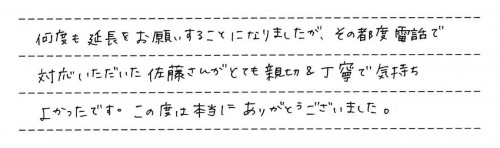 何度も延長をお願いすることになりましたが、その都度電話で
対応いただいた佐藤さんがとても親切&丁寧で気持ち
よかったです。この度は本当にありがとうございました。